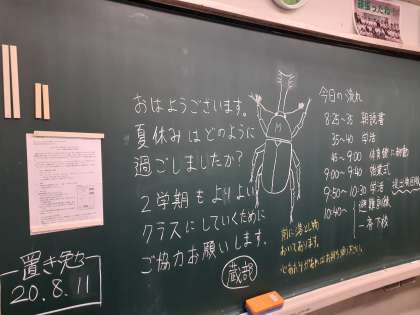 おはようございます。
夏休みはどのように
過ごしましたか？
2学期もよりよい
クラスにしていくために
ご協力お願いします。
蔵哉
M
今日の流れ
8:25~35 朝読書
35~40 学活
45~9:00 体育館に移動
9:00~9:40 始業式
9:50~10:30 学活
10:40~ 避難訓練
一斉下校
前に
おいてあります。
心あたりがあればお持ち
置き勉
20.8.11